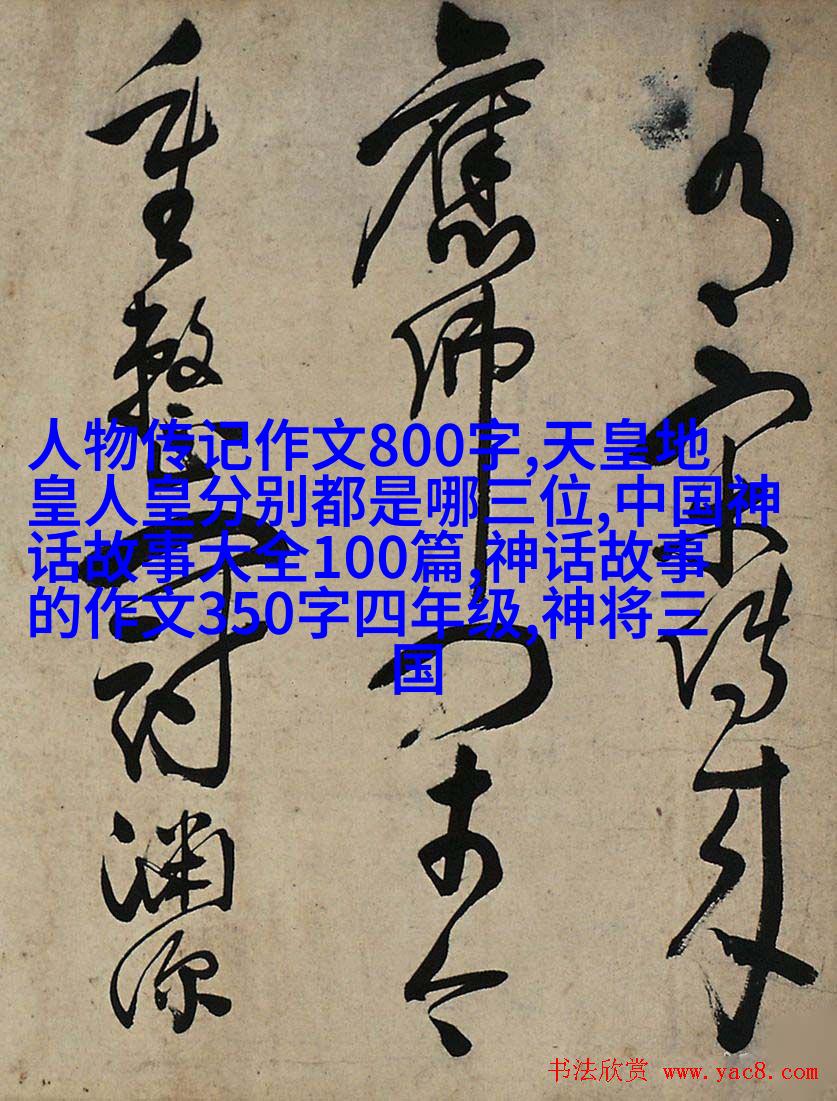 宋
佛
重整討渊源
人物传记作文800字,天皇地
皇人皇分别都是哪三位,中国神
话故事大全100篇,神话故事
的作文350字四年级,神将三
国
书法欣赏 www.yac8.com